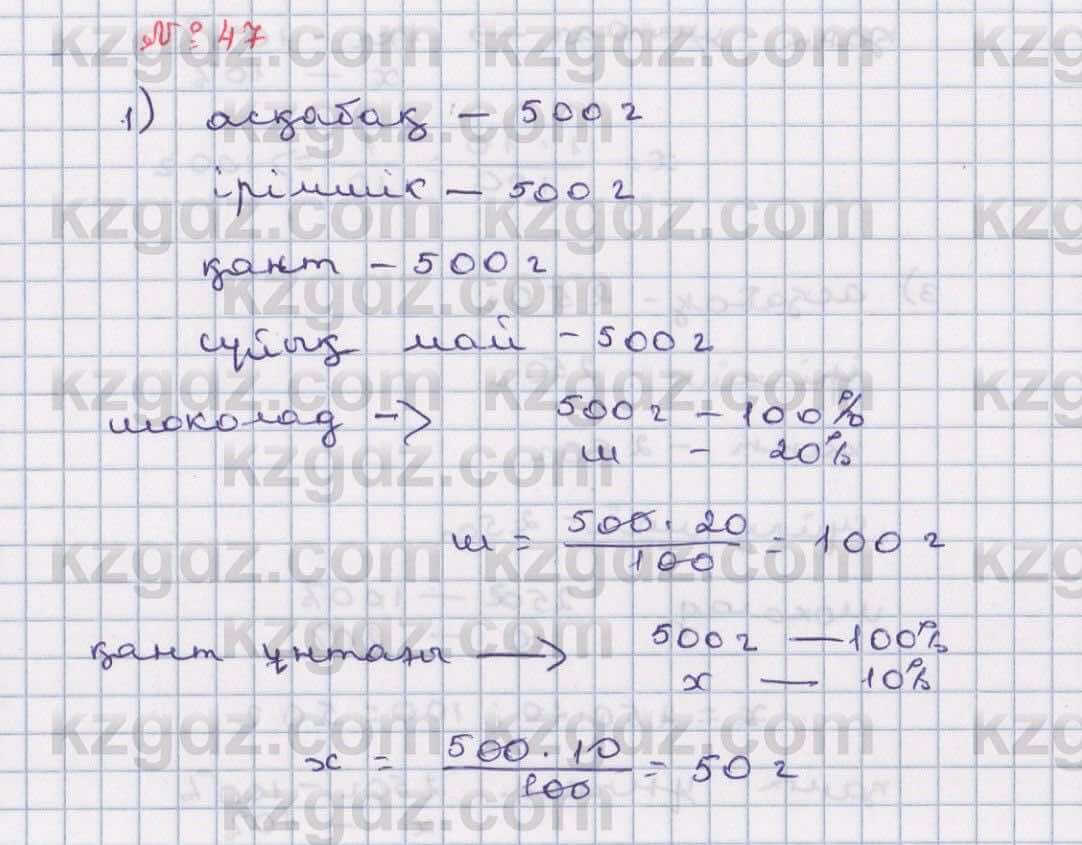 № 47
1) асқабақ – 500 г
ірімшік – 500 г
қант – 500 г
сұйық май – 500 г
шоколад –> 500 г – 100%
ш – 20%
ш = 500 · 20 / 100 = 100 г
қант ұнтағы —> 500 г — 100%
х — 10%
х = 500 · 10 / 100 = 50 г
kzgdz.com